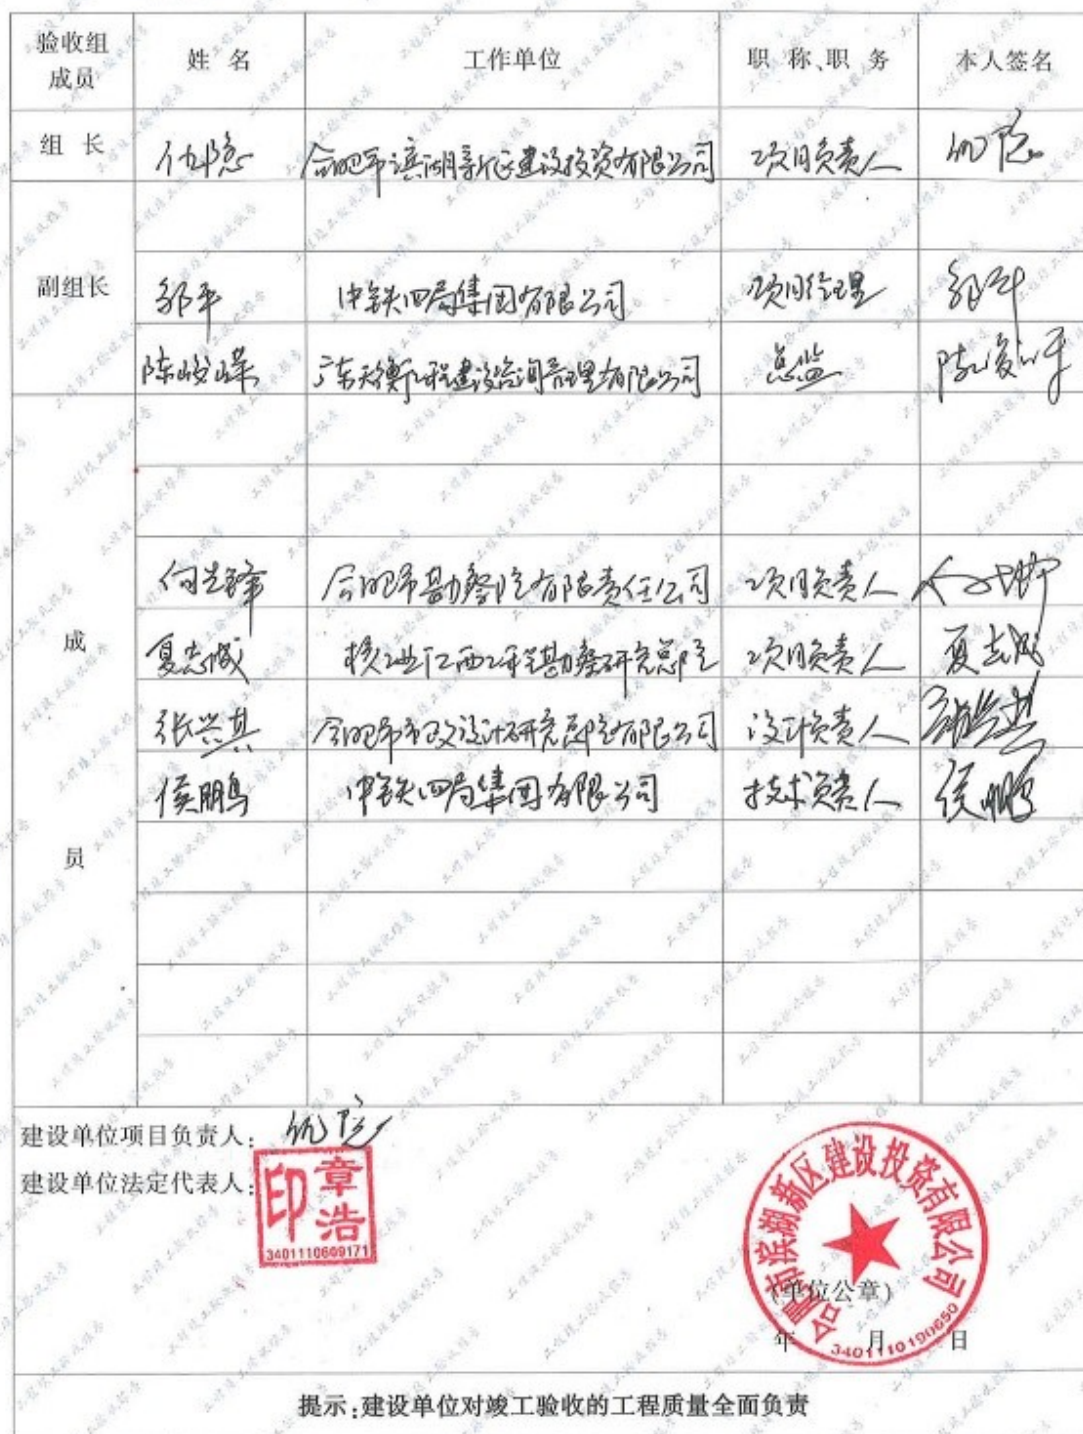 验收组成员 姓名 工作单位 职称、职务 本人签名
组长 仇隐 合肥市滨湖新区建设投资有限公司 项目负责人 仇隐
副组长
邹平 中铁四局集团有限公司 项目经理 邹平
陈峻嵘 广东天衡工程建设咨询管理有限公司 总监
成员
何先锋 合肥市勘察院有限责任公司 项目负责人
夏志成 核工业江西工程勘察研究总院 项目负责人 夏志成
张兴其 合肥市市政设计研究总院有限公司 设计负责人 张兴其
侯鹏鸟 中铁四局集团有限公司 技术负责人
建设单位项目负责人: 仇隐
建设单位法定代表人:
章浩印
3401110609171
合肥市滨湖新区建设投资有限公司
(单位公章)
年 月 日
34011110190650
提示:建设单位对竣工验收的工程质量全面负责
工程竣工验收报告